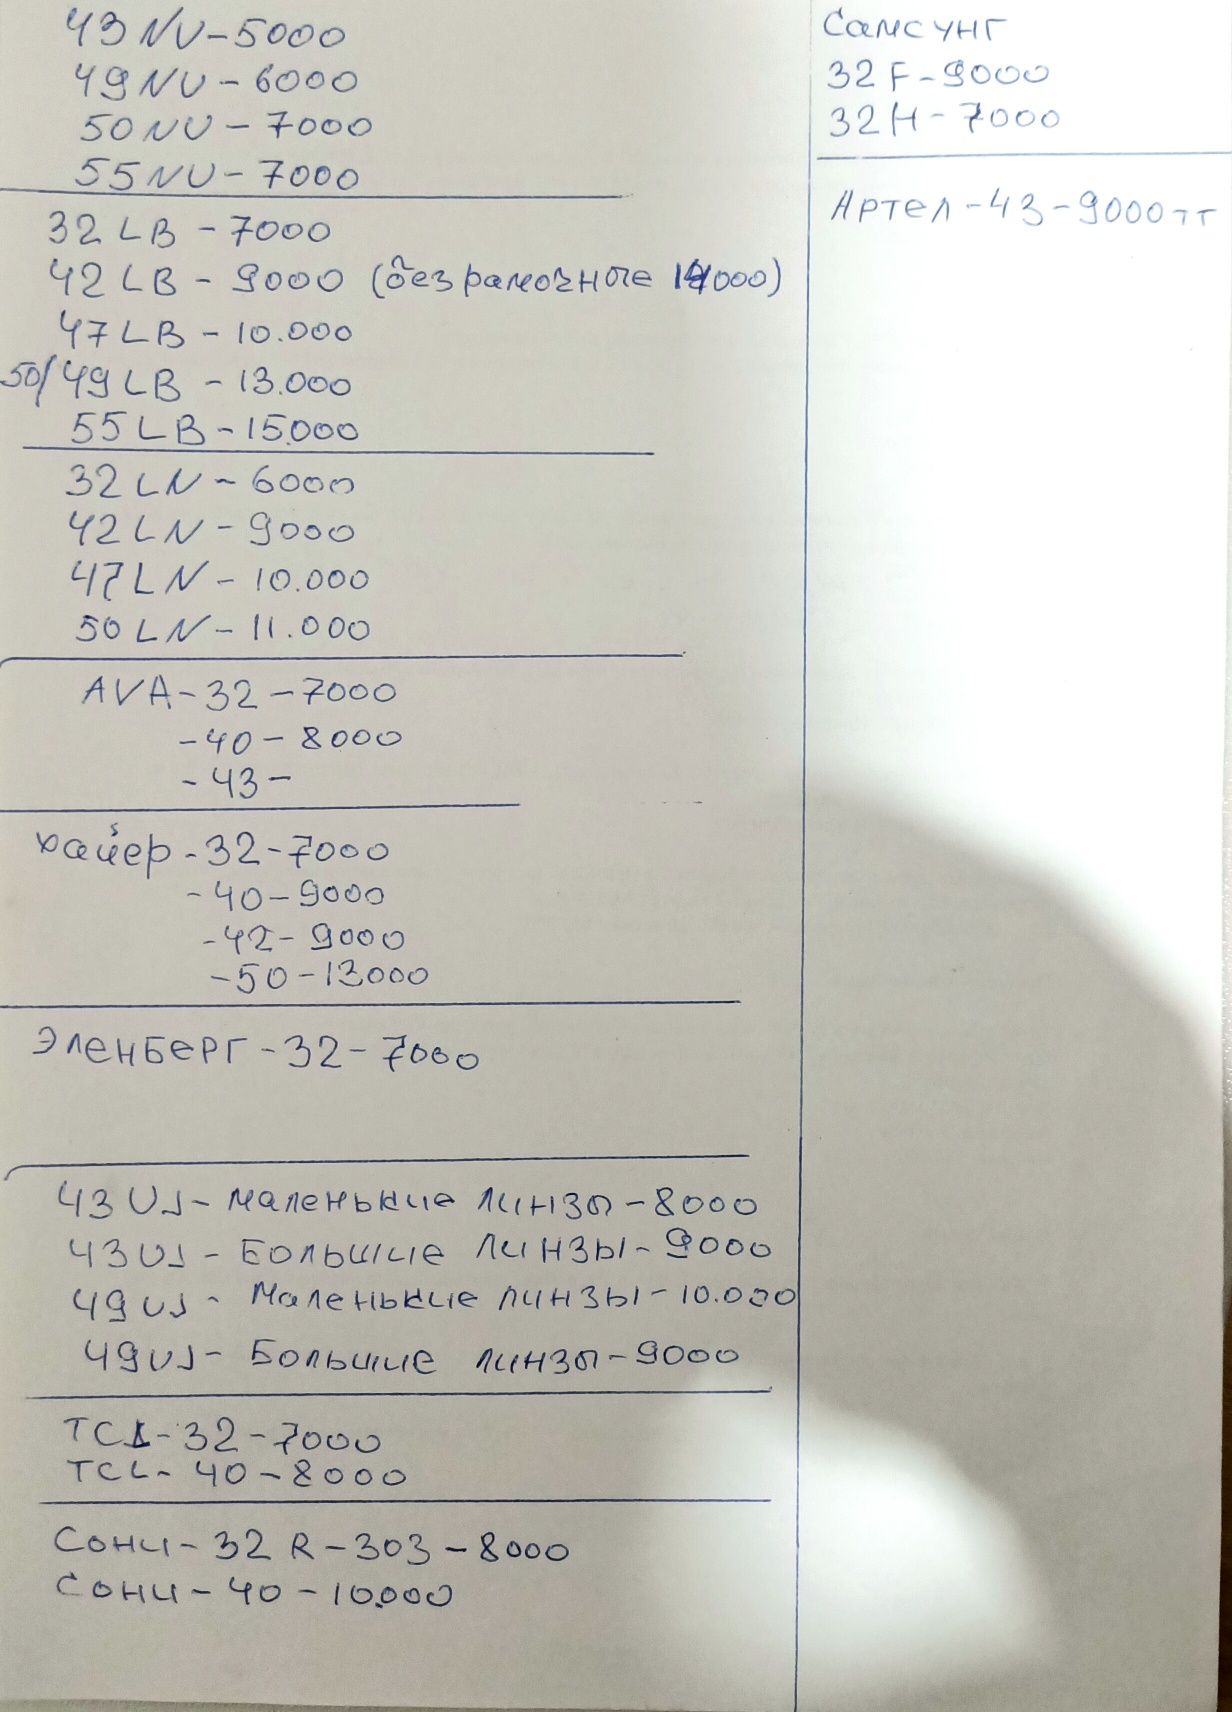 43 NU - 5000
49 NU - 6000
50 NU - 7000
55 NU - 7000
32 LB - 7000
42 LB - 9000 (безрамочные 14000)
47 LB - 10.000
50/49 LB - 13.000
55 LB - 15000
32 LN - 6000
42 LN - 9000
47 LN - 10.000
50 LN - 11.000
AVA - 32 - 7000
- 40 - 8000
- 43 -
хайер - 32 - 7000
- 40 - 9000
- 42 - 9000
- 50 - 13000
Эленберг - 32 - 7000
43 UJ - маленькие линзы - 8000
43 UJ - Большие линзы - 9000
49 UJ - Маленькие линзы - 10.000
49 UJ - Большие линзы - 9000
TCL - 32 - 7000
TCL - 40 - 8000
Сони - 32 R - 303 - 8000
Сони - 40 - 10.000
Самсунг
32 F - 9000
32 H - 7000
Артел - 43 - 9000 тг